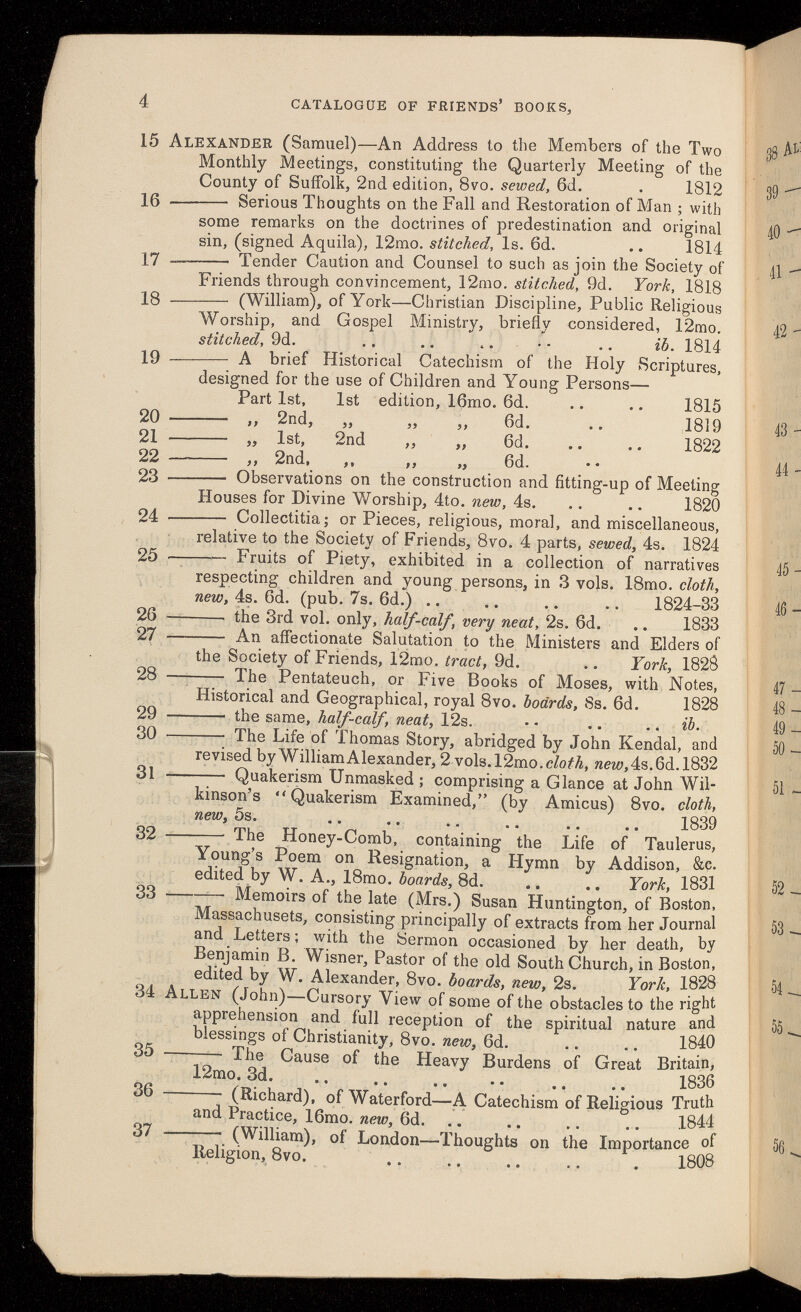 4 CATALOGUE OF FRIENDS' BOOKS,
15 ALEXANDER (Samuel)—An Address to the Members of the Two
Monthly Meetings, constituting the Quarterly Meeting of the
County of Suffolk, 2nd edition, 8vo. sewed, 6d. . 1812
16 ——— Serious Thoughts on the Fall and Restoration of Man ; with
some remarks on the doctrines of predestination and original
sin, (signed Aquila), 12mo. stitched, 1s. 6d. .. 1814
17 ——— Tender Caution and Counsel to such as join the Society of
Friends through convincement, 12mo. stitched, 9d. York, 1818
18 ——— (William), of York—Christian Discipline, Public Religious
Worship, and Gospel Ministry, briefly considered, 12mo.
stitched, 9d. .. .. .. .. .. ib. 1814
19 ——— A brief Historical Catechism of the Holy Scriptures,
designed for the use of Children and Young Persons—
Part 1st, 1st edition, 16mo. 6d. .. .. 1815
20 ——— „ 2nd, „ „ „ 6d. .. 1819
21 ——— „ 1st, 2nd „ „ 6d. .. .. 1822
22 ——— „ 2nd, „ „ „ 6d. ..
23 ——— Observations on the construction and fitting-up of Meeting
Houses for Divine Worship, 4to. new, 4s. .. .. 1820
24 ——— Collectitia; or Pieces, religious, moral, and miscellaneous,
relative to the Society of Friends, 8vo. 4 parts, sewed, 4s. 1824
25 ——— Fruits of Piety, exhibited in a collection of narratives
respecting children and young persons, in 3 vols. 18mo. cloth,
new, 4s. 6d. (pub. 7s. 6d.) .. .. .. .. 1824-33
26 ——— the 3rd vol. only, half-calf, very neat, 2s. 6d. .. 1833
27 ——— An affectionate Salutation to the Ministers and Elders of
the Society of Friends, 12mo. tract, 9d. .. York, 1828
28 ——— The Pentateuch, or Five Books of Moses, with Notes,
Historical and Geographical, royal 8vo. boards, 8s. 6d. 1828
29 ——— the same, half-calf, neat, 12s. .. .. .. ib.
30 ——— The Life of Thomas Story, abridged by John Kendal, and
revised by William Alexander, 2 vols. 12mo. cloth, new, 4s. 6d. 1832
31 ——— Quakerism Unmasked ; comprising a Glance at John Wil-
kinson's "Quakerism Examined," (by Amicus) 8vo. cloth,
new, 5s. .. .. .. .. .. .. 1839
32 ——— The Honey-Comb, containing the Life of Taulerus,
Young's Poem on Resignation, a Hymn by Addison, &c.
edited by W. A., 18mo. boards, 8d. .. .. York, 1831
33 ——— Memoirs of the late (Mrs.) Susan Huntington, of Boston,
Massachusets, consisting principally of extracts from her Journal
and Letters; with the Sermon occasioned by her death, by
Benjamin B. Wisner, Pastor of the old South Church, in Boston,
edited by W. Alexander, 8vo. boards, new, 2s. York, 1828
34 ALLEN (John)—Cursory View of some of the obstacles to the right
apprehension and full reception of the spiritual nature and
blessings of Christianity, 8vo. new, 6d. .. .. 1840
35 ——— The Cause of the Heavy Burdens of Great Britain,
12mo. 3d. .. .. .. .. .. .. 1836
36 ——— (Richard), of Waterford—A Catechism of Religious Truth
and Practice, 16mo. new, 6d. .. .. .. .. 1844
37 ——— (William), of London—Thoughts on the Importance of
Religion, 8vo. .. .. .. .. . 1808
38 AL
39 —
40 —
41 —
42 -
43 -
44 -
45 -
46 -
47 —
48 —
49 —
50 —
51 —
52 —
53 —
54 —
55 —
56 —